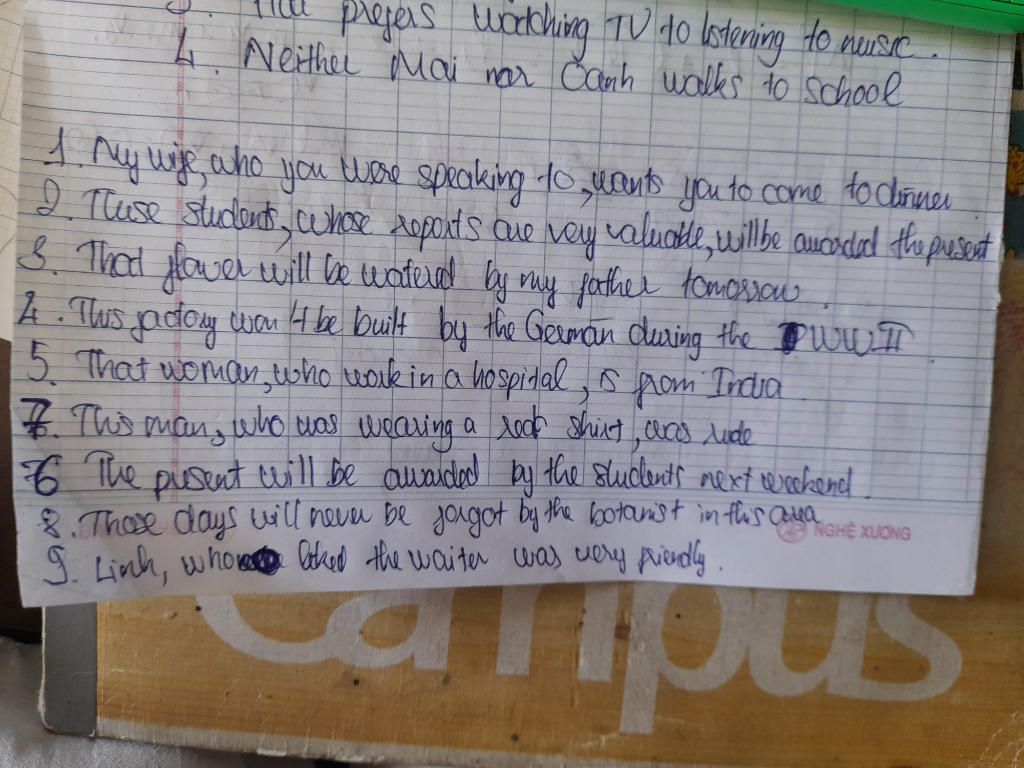 prefers watching TV to listening to music.
4. Neither Mai nor Oanh walks to school
1. My wife, who you were speaking to, wants you to come to dinner
2. These students, whose reports are very valuable, will be awarded the present
3. That flower will be watered by my father tomorrow.
4. This factory won't be built by the German during the WWII.
5. That woman, who work in a hospital, is from India
7. This man, who was wearing a red shirt, was rude
6 The present will be awarded by the students next weekend.
8. Those days will never be forgot by the botanist in this area
NGHỆ XƯƠNG
9. Linh, who liked the waiter was very friendly.
Campus